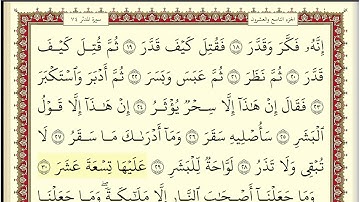 الجزء التاسع والعشرون سورة المدثر ٧٤
إِنَّهُۥ فَكَّرَ وَقَدَّرَ ١٨ فَقُتِلَ كَيْفَ قَدَّرَ ١٩ ثُمَّ قُتِلَ كَيْفَ
قَدَّرَ ٢٠ ثُمَّ نَظَرَ ٢١ ثُمَّ عَبَسَ وَبَسَرَ ٢٢ ثُمَّ أَدْبَرَ وَٱسْتَكْبَرَ
٢٣ فَقَالَ إِنْ هَٰذَآ إِلَّا سِحْرٌ يُؤْثَرُ ٢٤ إِنْ هَٰذَآ إِلَّا قَوْلُ
ٱلْبَشَرِ ٢٥ سَأُصْلِيهِ سَقَرَ ٢٦ وَمَآ أَدْرَىٰكَ مَا سَقَرُ ٢٧ لَا
تُبْقِى وَلَا تَذَرُ ٢٨ لَوَّاحَةٌ لِّلْبَشَرِ ٢٩ عَلَيْهَا تِسْعَةَ عَشَرَ ٣٠
وَمَا جَعَلْنَآ أَصْحَٰبَ ٱلنَّارِ إِلَّا مَلَٰٓئِكَةً ۙ وَمَا جَعَلْنَا